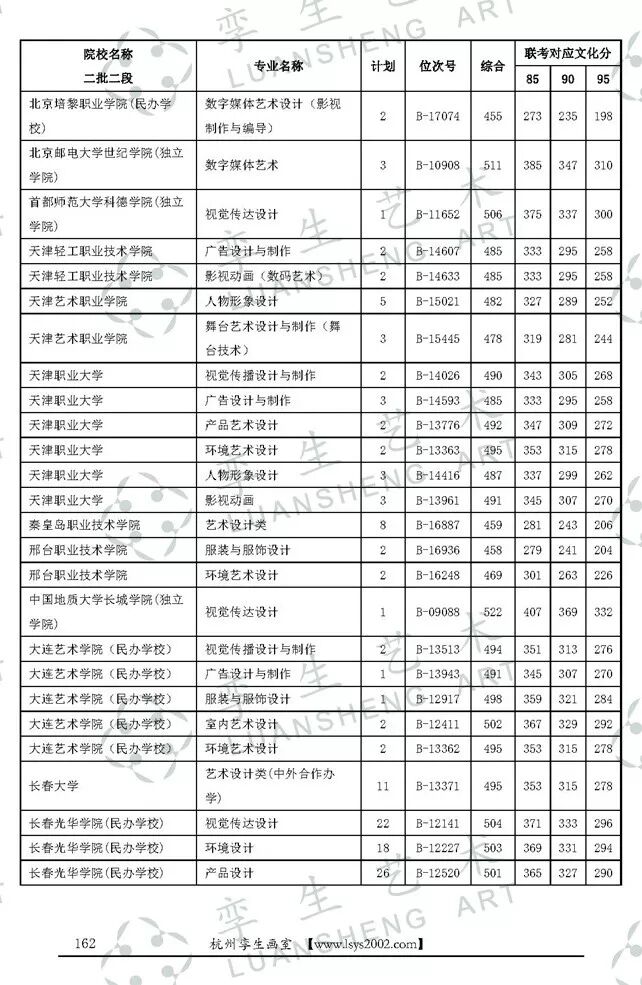 院校名称 专业名称 计划 位次号 综合 联考对应文化分
二批二段 85 90 95
北京培黎职业学院(民办学 数字媒体艺术设计（影视
校) 制作与编导） 2 B-17074 455 273 235 198
北京邮电大学世纪学院(独立
学院) 数字媒体艺术 3 B-10908 511 385 347 310
首都师范大学科德学院(独立
学院) 视觉传达设计 1 B-11652 506 375 337 300
天津轻工职业技术学院 广告设计与制作 2 B-14607 485 333 295 258
天津轻工职业技术学院 影视动画（数码艺术） 2 B-14633 485 333 295 258
天津艺术职业学院 人物形象设计 5 B-15021 482 327 289 252
天津艺术职业学院 舞台艺术设计与制作（舞
台技术） 3 B-15445 478 319 281 244
天津职业大学 视觉传播设计与制作 2 B-14026 490 343 305 268
天津职业大学 广告设计与制作 3 B-14593 485 333 295 258
天津职业大学 产品艺术设计 2 B-13776 492 347 309 272
天津职业大学 环境艺术设计 2 B-13363 495 353 315 278
天津职业大学 人物形象设计 3 B-14416 487 337 299 262
天津职业大学 影视动画 3 B-13961 491 345 307 270
秦皇岛职业技术学院 艺术设计类 8 B-16887 459 281 243 206
邢台职业技术学院 服装与服饰设计 2 B-16936 458 279 241 204
邢台职业技术学院 环境艺术设计 2 B-16248 469 301 263 226
中国地质大学长城学院(独立
学院) 视觉传达设计 1 B-09088 522 407 369 332
大连艺术学院（民办学校） 视觉传播设计与制作 2 B-13513 494 351 313 276
大连艺术学院（民办学校） 广告设计与制作 1 B-13943 491 345 307 270
大连艺术学院（民办学校） 服装与服饰设计 1 B-12917 498 359 321 284
大连艺术学院（民办学校） 室内艺术设计 2 B-12411 502 367 329 292
大连艺术学院（民办学校） 环境艺术设计 2 B-13362 495 353 315 278
长春大学 艺术设计类(中外合作办
学) 11 B-13371 495 353 315 278
长春光华学院(民办学校) 视觉传达设计 22 B-12141 504 371 333 296
长春光华学院(民办学校) 环境设计 18 B-12227 503 369 331 294
长春光华学院(民办学校) 产品设计 26 B-12520 501 365 327 290
162 杭州孪生画室 【www.lsys2002.com】
孪生艺术
LUANSHENG ART